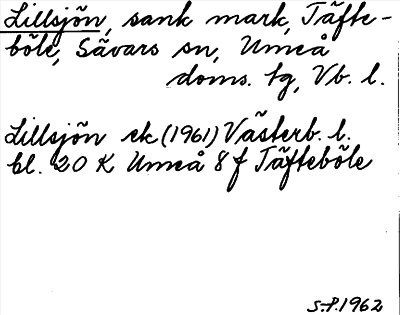 Lillsjön, sank mark, Täfte-
böle, Sävars sn, Umeå
doms. tg, Vb. l.
Lillsjön ek (1961) Västerb. l.
bl. 20 K Umeå 8 f Täfteböle
S.P. 1962